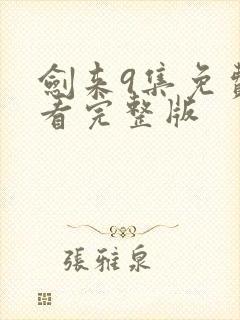 劍来9集免費
看完整版
張雅泉